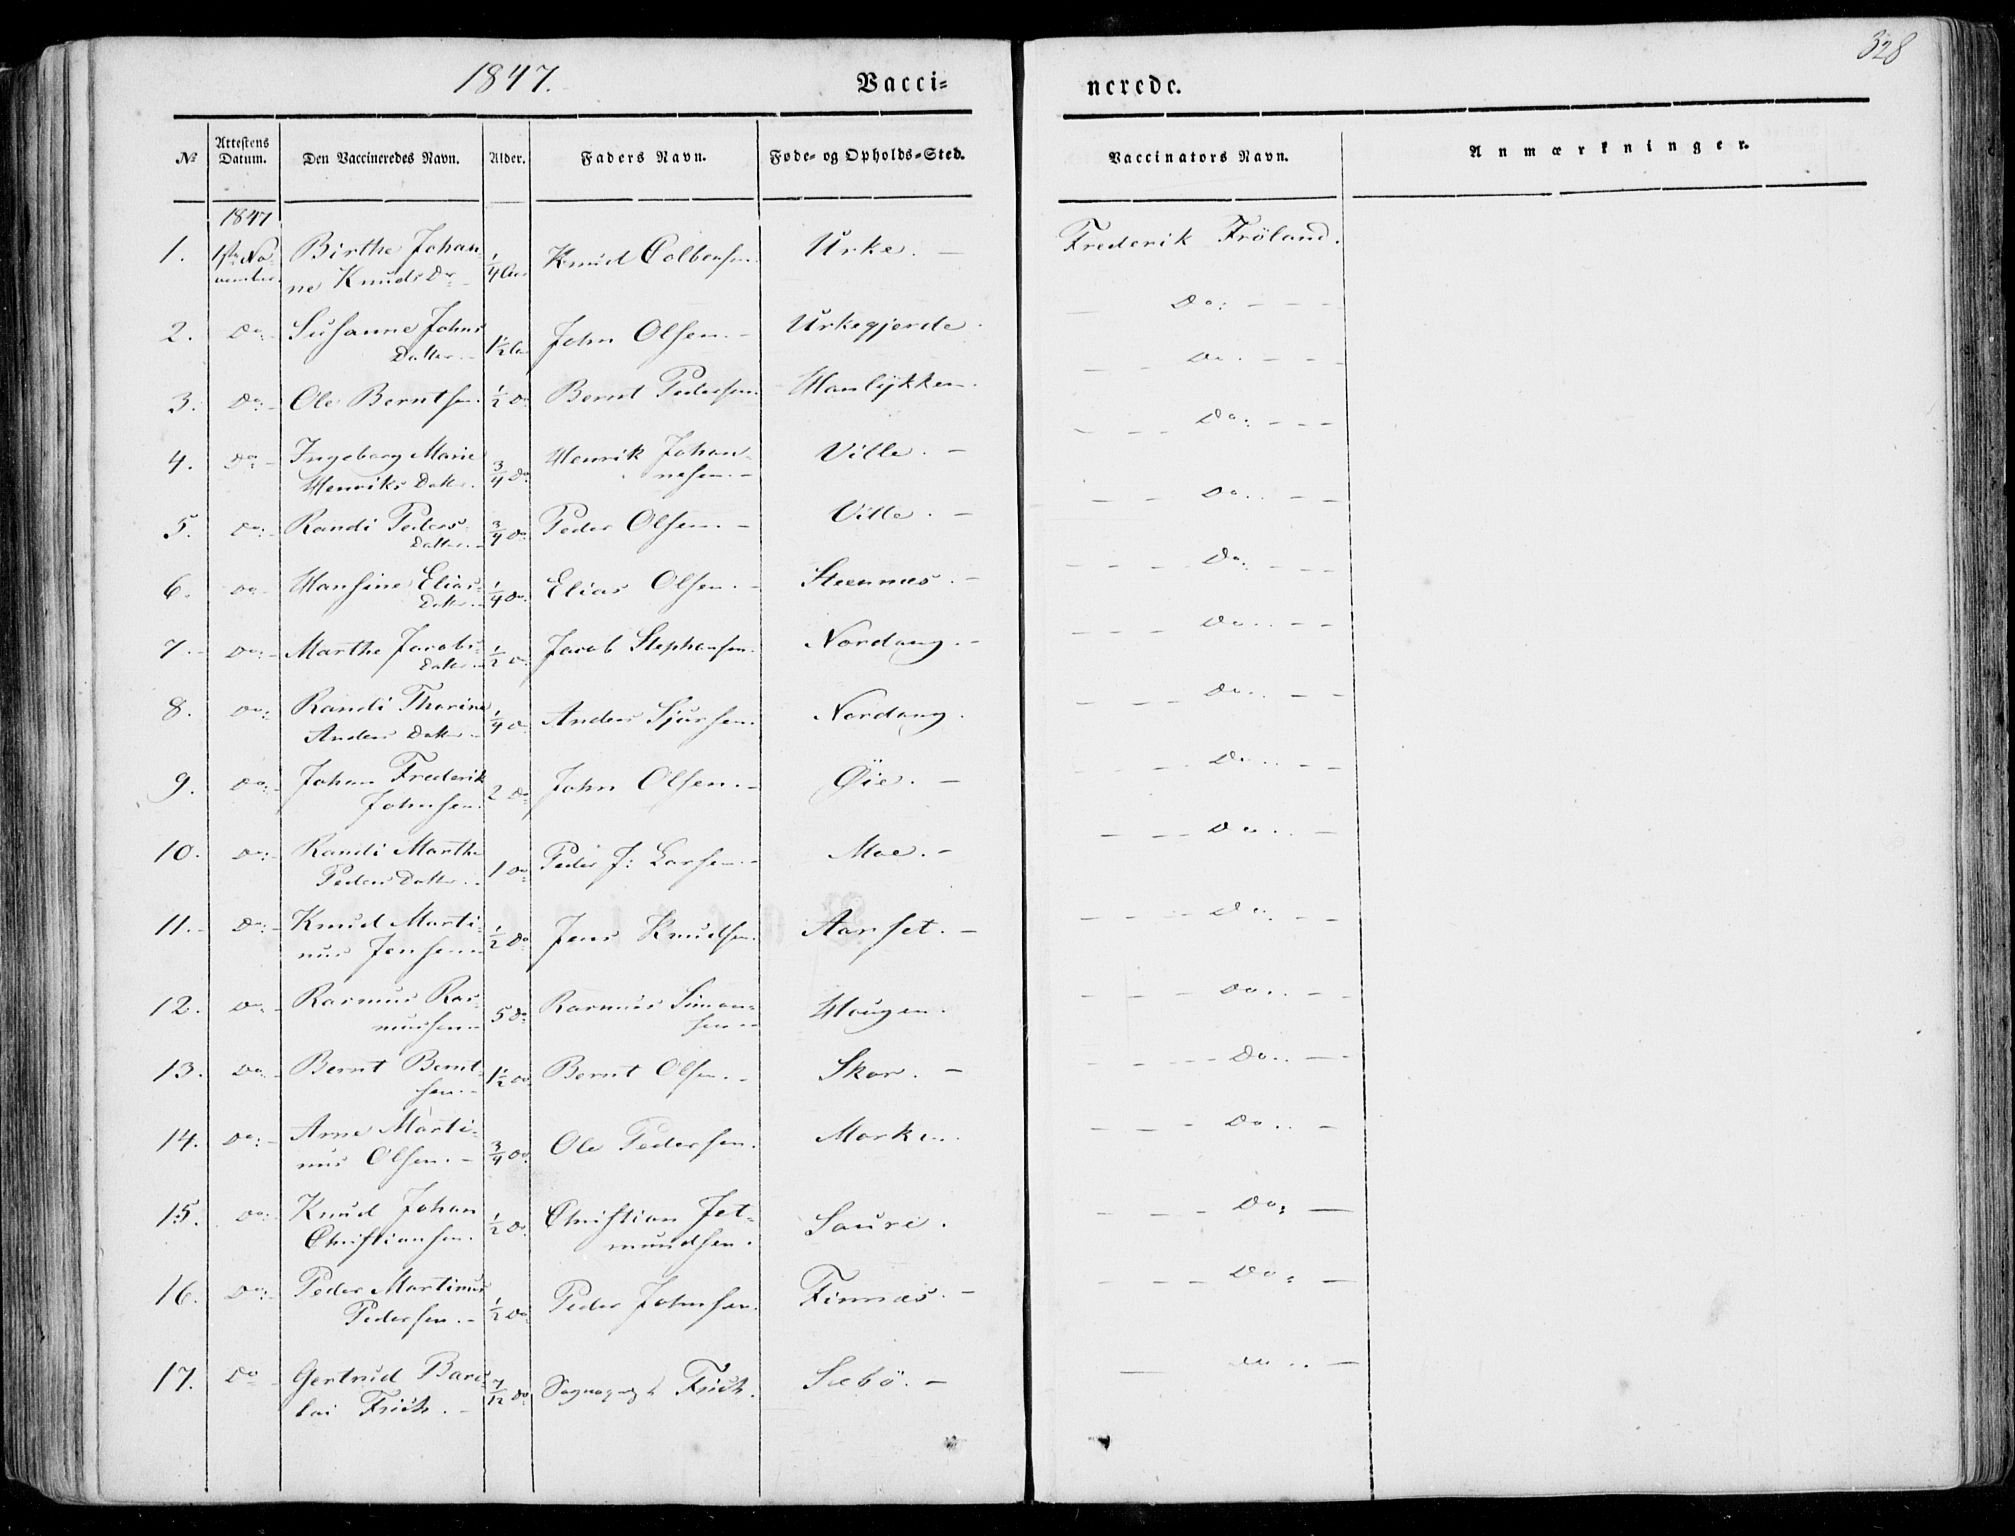 328
1847. Vacci= nerede.
No Attestens Datum. Den Vaccineredes Navn. Alder. Faders Navn. Føde= og Opholds=Sted. Vaccinators Navn. Anmærkninger.
1847
1. 1ste No- Birthe Johan- 1/4 Aar Knud Colbensen Urke. — Frederik Fröland.
vember ne Knuds Dr
2. Do: Susanne Johns 1 1/2 John Olsen. — Urkegjerde. Do:
Datter. —
3. Do: Ole Berntsen. 1/2 Do Bernt Pedersen. Hanlykken. Do.
4. Do Ingeborg Marie 3/4 Do Henrik Johan- Ville. — Do:
Henriks Datter. nesen. —
5. Do: Randi Peders- 3/4 Do Peder Olsen. — Ville. — Do.
Datter. —
6. Do Hansine Elias- 1/4 Do. Elias Olsen. — Steennæs. — Do:
Datter. —
7. Do: Marthe Jacobs- 1/2 Do Jacob Stephansen. Nordang. — Do.
Datter. —
8. Do: Randi Tharine 1/4 Do Anders Sjursen. Nordang. Do.
Anders Datter —
9. Do: Johan Frederik 2 Do John Olsen. — Øie. — Do.
Johnsen.
10. Do: Randi Marthe 1 Do Peder J: Larsen. — Moe. — Do.
Peders Datter. —
11. Do: Knud Marti- 1/2 Do Jens Knudsen. Aarset. — Do.
nus Jensen
12. Do Rasmus Ras- 5 Do Rasmus Simon- Hougen. Do.
mussen sen —
13. Do: Bernt Bernt- 1 1/2 Do Bernt Olsen. — Skar. — Do.
sen. —
14. Do: Arne Marti- 3/4 Do. Ole Pedersen. Morken. Do.
nus Olsen. —
15. Do: Knud Johan 1/2 Do. Christian Jet- Soure. Do:
Christiansen. mundsen.
16. Do: Peder Martinus 1/2 Do Peder Johnsen. Finnæs. — Do:
Pedersen. —
17. Do Gertrud Barc- 7/12 Do Frich. Sæbö. — Do.
lai Frich. —